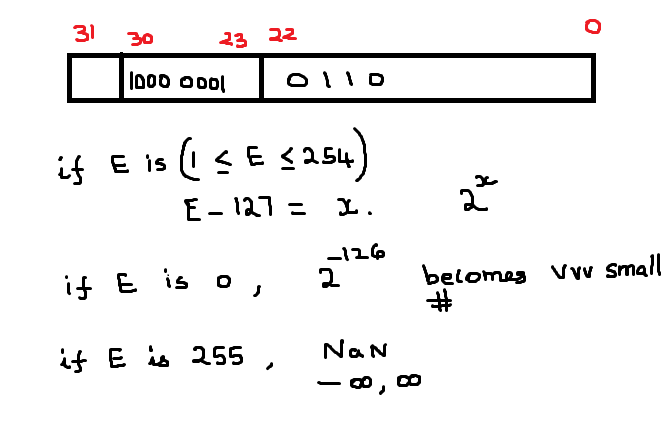 31 30 23 22 0
1000 0001 0 1 1 0
if E is (1 ≤ E ≤ 254)
E - 127 = x. 2^x
if E is 0, 2^-126 becomes vvv small #
if E is 255, NaN
- ∞, ∞